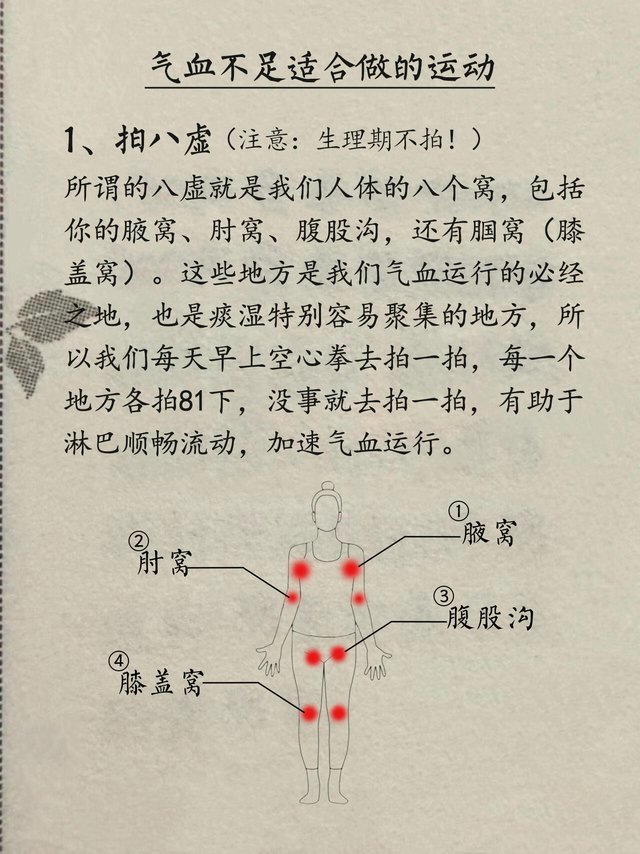 气血不足适合做的运动
1、拍八虚（注意：生理期不拍！）
所谓的八虚就是我们人体的八个窝，包括
你的腋窝、肘窝、腹股沟，还有腘窝（膝
盖窝）。这些地方是我们气血运行的必经
之地，也是痰湿特别容易聚集的地方，所
以我们每天早上空心拳去拍一拍，每一个
地方各拍81下，没事就去拍一拍，有助于
淋巴顺畅流动，加速气血运行。
①腋窝
②肘窝
③腹股沟
④膝盖窝